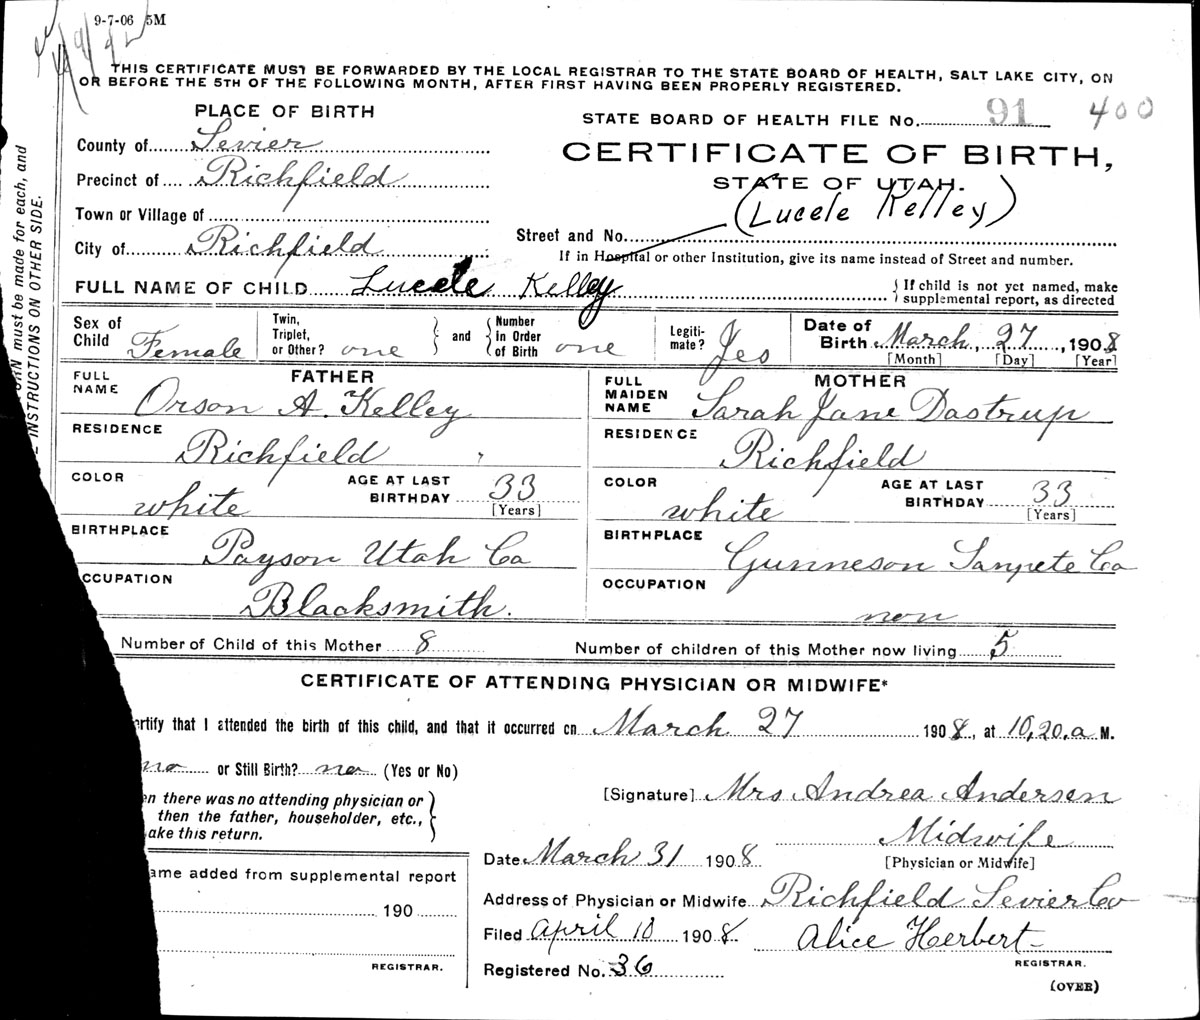 9-7-06 5M
THIS CERTIFICATE MUST BE FORWARDED BY THE LOCAL REGISTRAR TO THE STATE BOARD OF HEALTH, SALT LAKE CITY, ON
OR BEFORE THE 5TH OF THE FOLLOWING MONTH, AFTER FIRST HAVING BEEN PROPERLY REGISTERED.
PLACE OF BIRTH
STATE BOARD OF HEALTH FILE No. 91 400
County of Sevier
CERTIFICATE OF BIRTH,
Precinct of Richfield
STATE OF UTAH.
Town or Village of
(Lucele Kelley)
City of Richfield
Street and No.
If in Hospital or other Institution, give its name instead of Street and number.
FULL NAME OF CHILD Lucele Kelley
If child is not yet named, make
supplemental report, as directed
Sex of Child Female
Twin, Triplet, or Other? one
and
Number in Order of Birth one
Legiti-mate? Yes
Date of Birth March, 27, 1908
[Month] [Day] [Year]
FATHER
FULL NAME Orson A. Kelley
RESIDENCE
Richfield
COLOR white
AGE AT LAST BIRTHDAY 33
[Years]
BIRTHPLACE
Payson Utah Co
OCCUPATION
Blacksmith.
MOTHER
FULL MAIDEN NAME Sarah Jane Dastrup
RESIDENCE
Richfield
COLOR white
AGE AT LAST BIRTHDAY 33
[Years]
BIRTHPLACE
Gunneson Sanpete Co
OCCUPATION
non
Number of Child of this Mother 8
Number of children of this Mother now living 5
CERTIFICATE OF ATTENDING PHYSICIAN OR MIDWIFE*
rtify that I attended the birth of this child, and that it occurred on March 27 1908, at 10,20.a M.
no or Still Birth? no (Yes or No)
en there was no attending physician or
then the father, householder, etc.,
ake this return.
[Signature] Mrs Andrea Andersen
Midwife
[Physician or Midwife]
Date March 31 1908
ame added from supplemental report
190
REGISTRAR.
Address of Physician or Midwife Richfield Sevier Co
Filed April 10 1908. Alice Herbert
REGISTRAR.
Registered No. 36
(OVER)
ORN must be made for each, and
E INSTRUCTIONS ON OTHER SIDE.